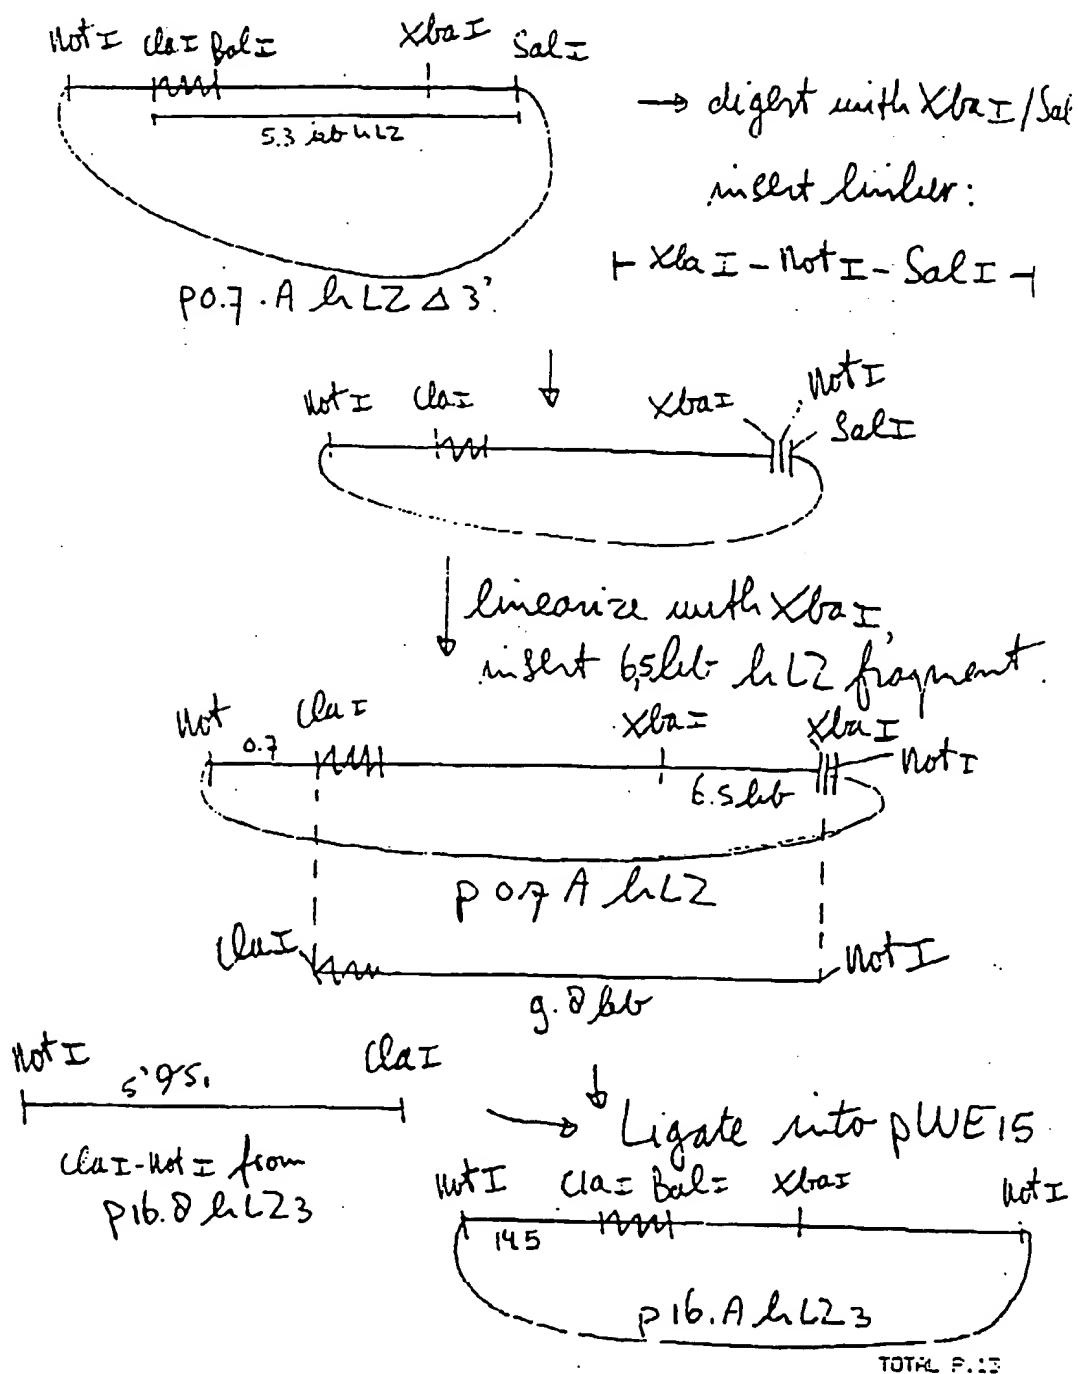 Not I ClaI BalI XbaI SalI
→ digest with XbaI/Sal
5.3 kb hLZ
insert linker:
⊢ XbaI - NotI - SalI ⊣
p0.7.A hLZ Δ 3'
NotI ClaI XbaI NotI
SalI
linearize with XbaI,
insert 6,5kb hLZ fragment.
Not ClaI XbaI XbaI
0.7 NotI
6.5kb
p 0.7 A hLZ
ClaI NotI
9.8 kb
NotI 5' ClaI
Ligate into pWE15
ClaI-NotI from
p16.8 hLZ3
NotI ClaI BalI XbaI NotI
14.5
p16.A hLZ3
TOTAL P.13